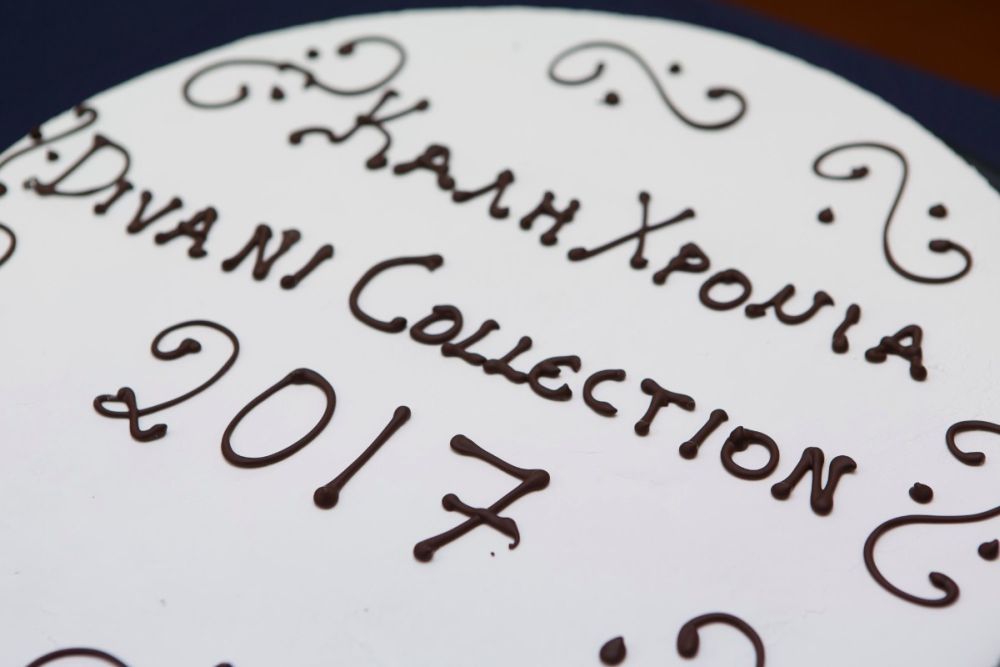 ΚΑΛΗ ΧΡΟΝΙΑ
DIVANI COLLECTION
2017